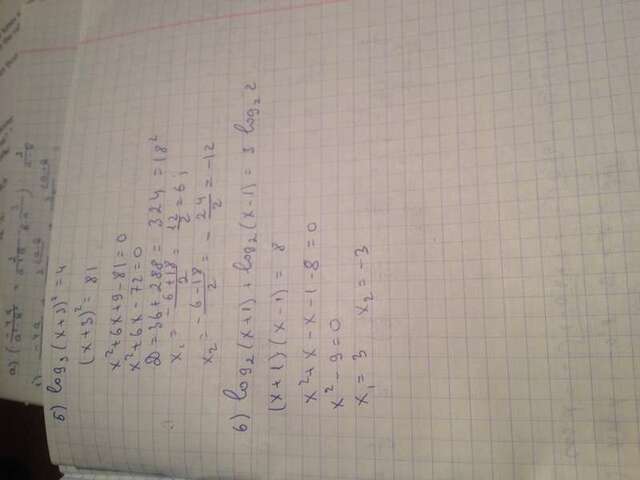 5) log₃(x+3)² = 4
(x+3)² = 81
x²+6x+9-81=0
x²+6x-72=0
D=36+288 = 324 = 18²
x₁ = (-6+18)/2 = 12/2 = 6;
x₂ = (-6-18)/2 = -24/2 = -12
6) log₂(x+1)+log₂(x-1) = 3 log₂2
(x+1)(x-1) = 8
x²+x-x-1-8=0
x²-9=0
x₁=3 x₂=-3